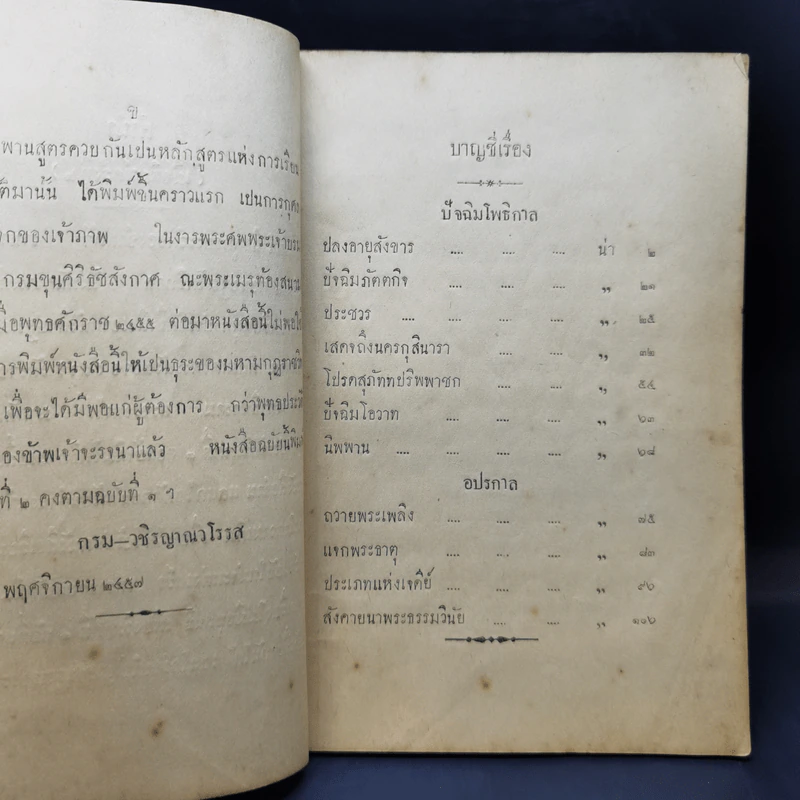 ข
พานสูตรควยกันเปนหลักสูตรแห่งการเรียน
ติมานั้น ได้พิมพ์ขึ้นคราวแรก เปนการกุศล
ของเจ้าภาพ ในงารพระศพพระเจ้าบรม
กรมขุนศิริธัชสังกาศ ณะพระเมรุท้องสนาม
มื่อพุทธศักราช ๒๔๕๕ ต่อมาหนังสือนี้ไม่พอใช้
การพิมพ์หนังสือนี้ให้เปนธุระของมหามกุฎราชวิ
เพื่อจะได้มีพอแก่ผู้ต้องการ กว่าพุทธประวั
ของข้าพเจ้าจะรจนาแล้ว หนังสือฉบับนี้พิม
ที่ ๒ คงตามฉบับที่ ๑ ฯ
กรม—วชิรญาณวโรรส
พฤศจิกายน ๒๔๕๗
บาญชีเรื่อง
ปัจฉิมโพธิกาล
ปลงอายุสังขาร .... .... .... น่า ๒
ปัจฉิมภัตตกิจ .... .... .... ,, ๒๑
ประชวร .... .... .... .... ,, ๒๕
เสดจถึงนครกุสินารา .... .... ,, ๓๒
โปรดสุภัททปริพพาชก .... .... ,, ๕๔
ปัจฉิมโอวาท .... .... .... ,, ๖๓
นิพพาน .... .... .... .... ,, ๖๘
อปรกาล
ถวายพระเพลิง .... .... .... ,, ๗๕
แจกพระธาตุ .... .... .... ,, ๘๓
ประเภทแห่งเจดีย์ .... .... .... ,, ๙๖
สังคายนาพระธรรมวินัย .... .... ,, ๑๑๖